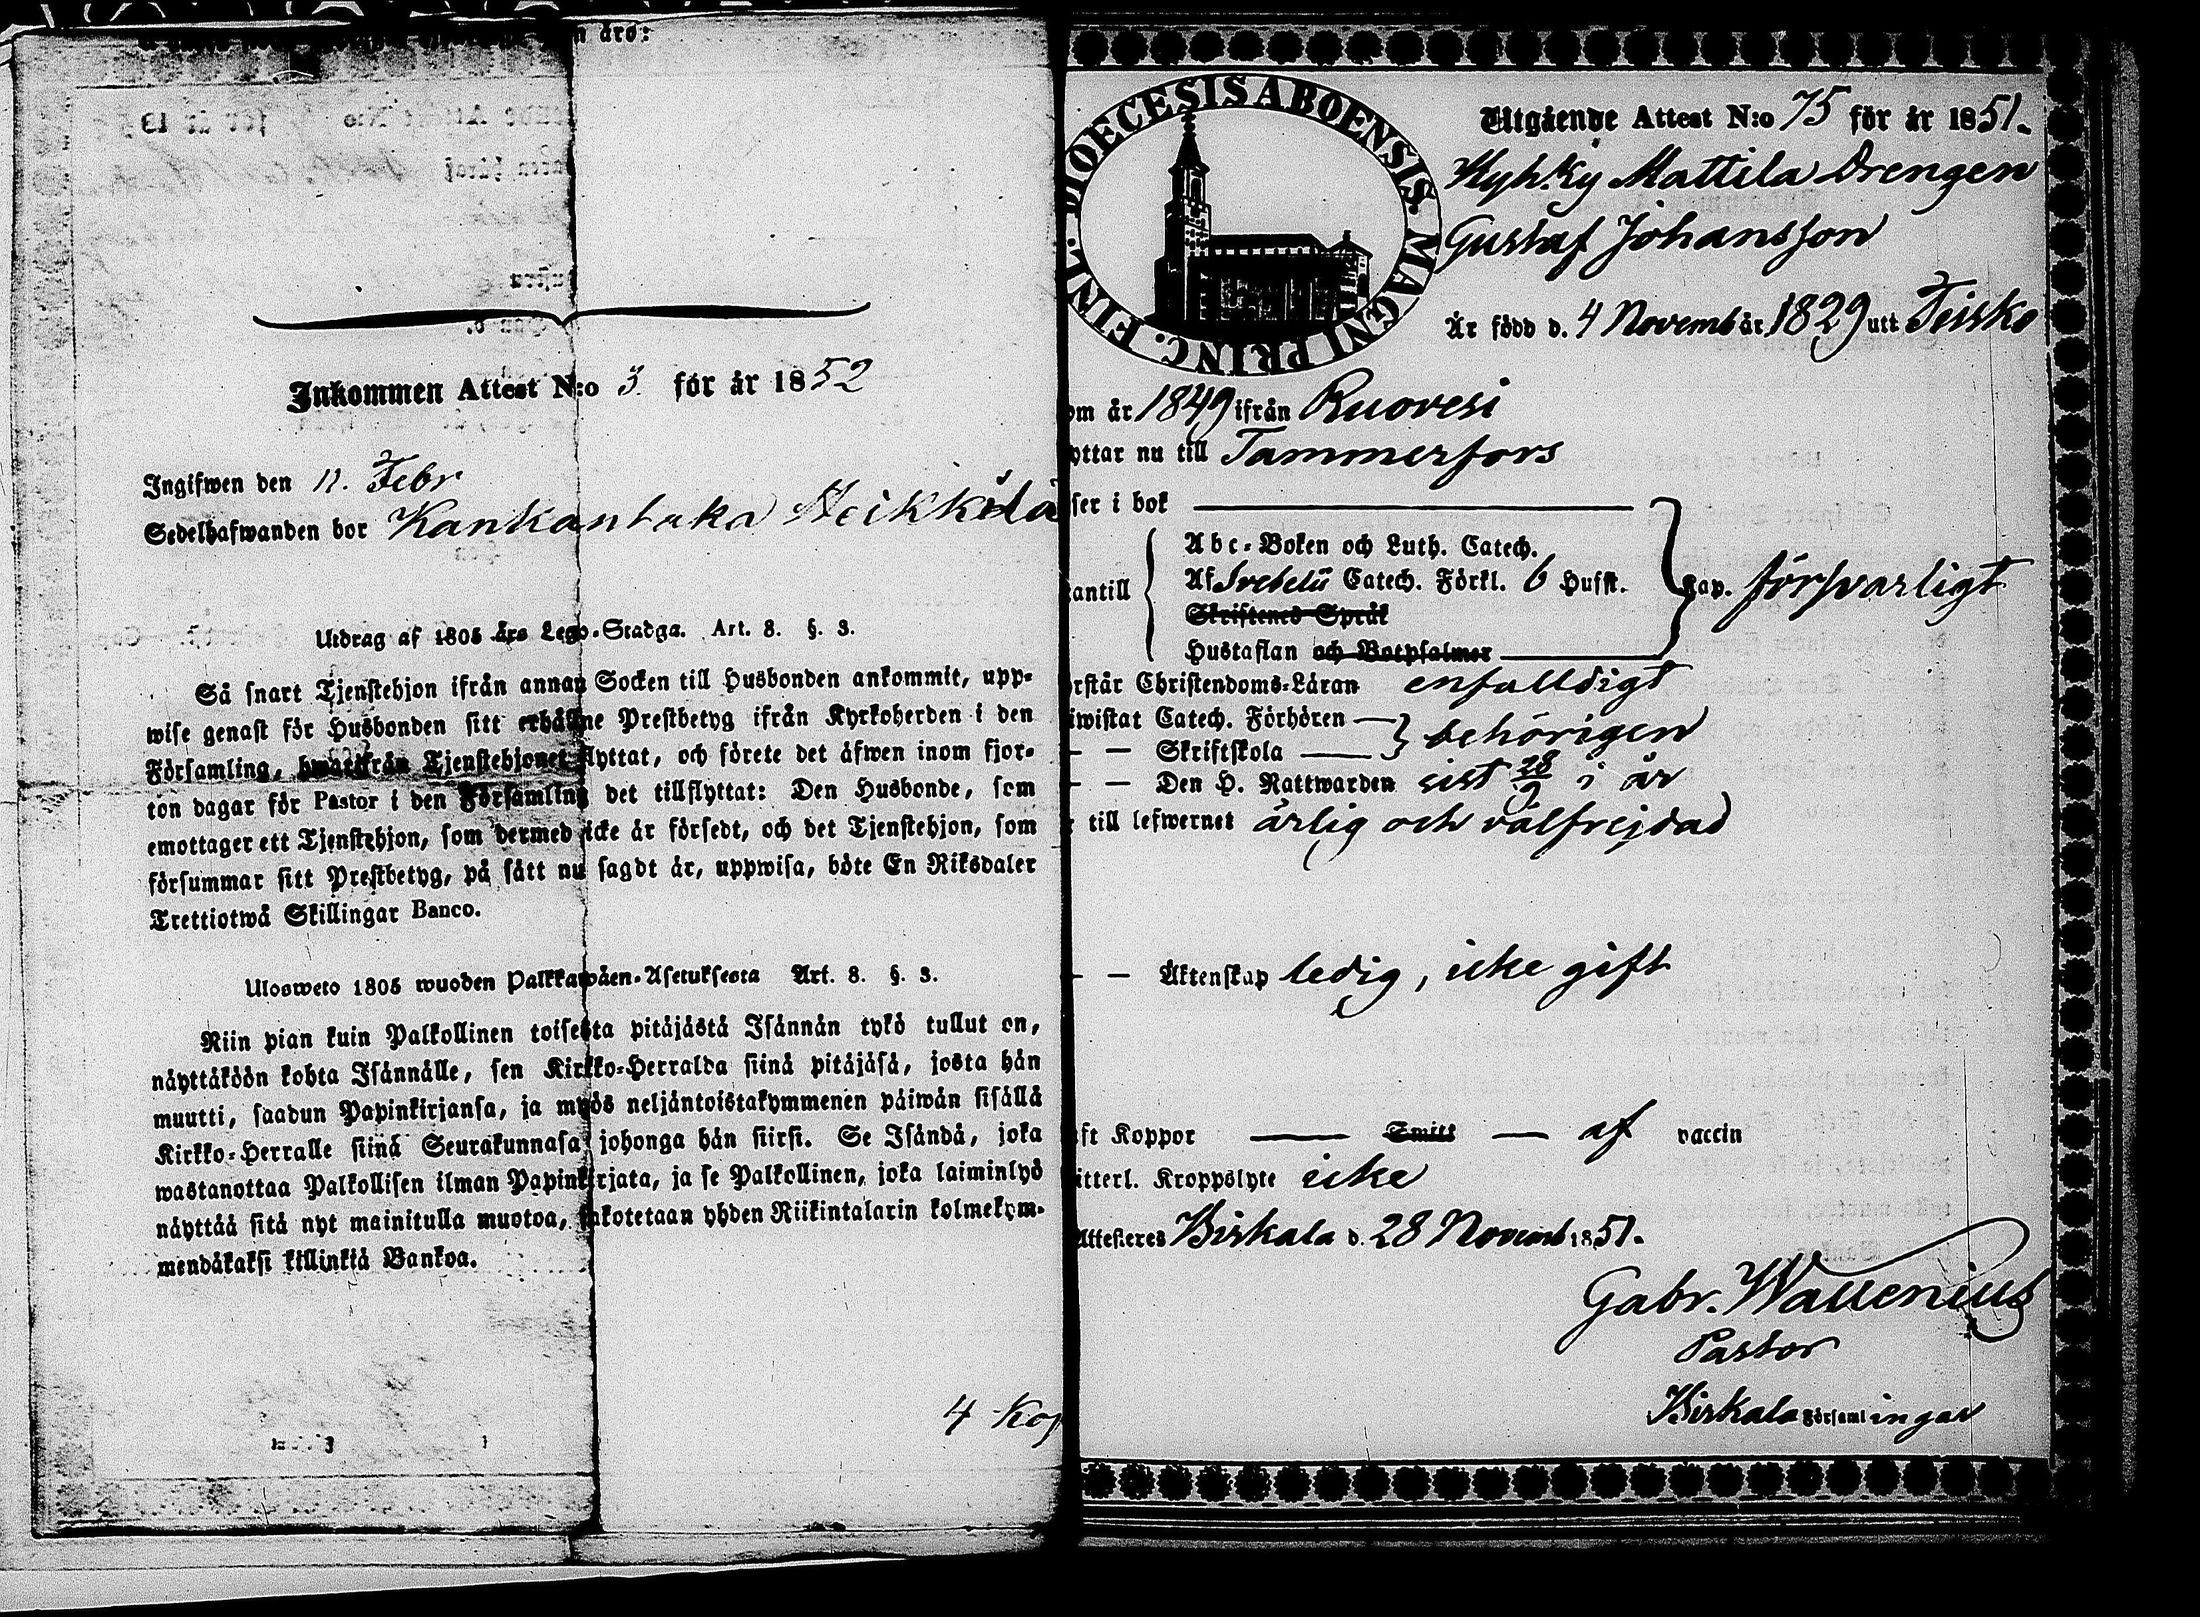 n äro:
Inkommen Attest N:o 3. för år 1852
Ingifwen den 12. Febr
Sedelhafwanden bor Kankantaka Heikkilä
Utdrag af 1805 års Lego-Stadga. Art. 8. §. 3.
Så snart Tjenstehjon ifrån annan Socken till Husbonden ankommit, upp-
wise genast för Husbonden sitt erhållne Prestbetyg ifrån Kyrkoherden i den
Församling, hwarifrån Tjenstehjonet flyttat, och förete det äfwen inom fjor-
ton dagar för Pastor i den Församling det tillflyttat: Den Husbonde, som
emottager ett Tjenstehjon, som dermed icke är försedt, och det Tjenstehjon, som
försummar sitt Prestbetyg, på sätt nu sagdt är, uppwisa, böte En Riksdaler
Trettiotwå Skillingar Banco.
Ulosweto 1805 wuoden Palkkawäen-Asetuksesta Art. 8. §. 3.
Niin pian kuin Palkollinen toisesta pitäjästä Isännän tykö tullut on,
näyttäköön kohta Isännälle, sen Kirkko-Herralda siinä pitäjäsä, josta hän
muutti, saadun Papinkirjansa, ja myös neljäntoistakymmenen päiwän sisällä
Kirkko-Herralle siinä Seurakunnasa johonga hän siirsi. Se Isändä, joka
wastanottaa Palkollisen ilman Papinkirjata, ja se Palkollinen, joka laiminlyö
näyttää sitä nyt mainitulla muotoa, sakotetaan yhden Riikintalarin kolmekym-
mendäkaksi killinkiä Bankoa.
4 Kop
DIOECESIS ABOENSIS. MAGNI PRINC. FINL.
Utgående Attest N:o 75 för år 1851.
Kyhky Mattila Drengen
Gustaf Johansson
Är född d. 4 Novemb år 1829 utt Teisko
om år 1849 ifrån Ruovesi
yttar nu till Tammerfors
ser i bok
Abc-Boken och Luth. Catech.
antill Af Svebelii Catech. Förkl. 6 Hufst. Cap. försvarligt
Skriftenes Språk
Hustaflan och Botpsalmer
rstår Christendoms-Läran enfalldigt
iwistat Catech. Förhören
behörigen
Skriftskola
Den H. Nattwarden sist 28/9 i år
till lefwernet ärlig och välfrejdad
Äktenskap ledig, icke gift
aft Koppor Smitt af vaccin
itterl. Kroppslyte icke
Attesteres Birkala d. 28 Novemb 1851.
Gabr. Wallenius
Pastor
Birkala Församlingar